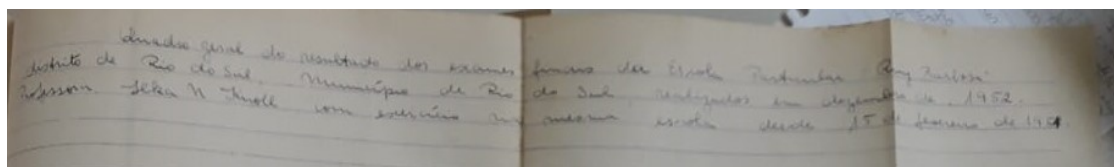 Quadro geral do resultado dos exames finais da Escola Particular "Ruy Barbosa"
distrito de Rio do Sul. Município de Rio do Sul, realizados em dezembro de 1952.
Professora N com exercício na mesma escola desde 15 de fevereiro de 1951.